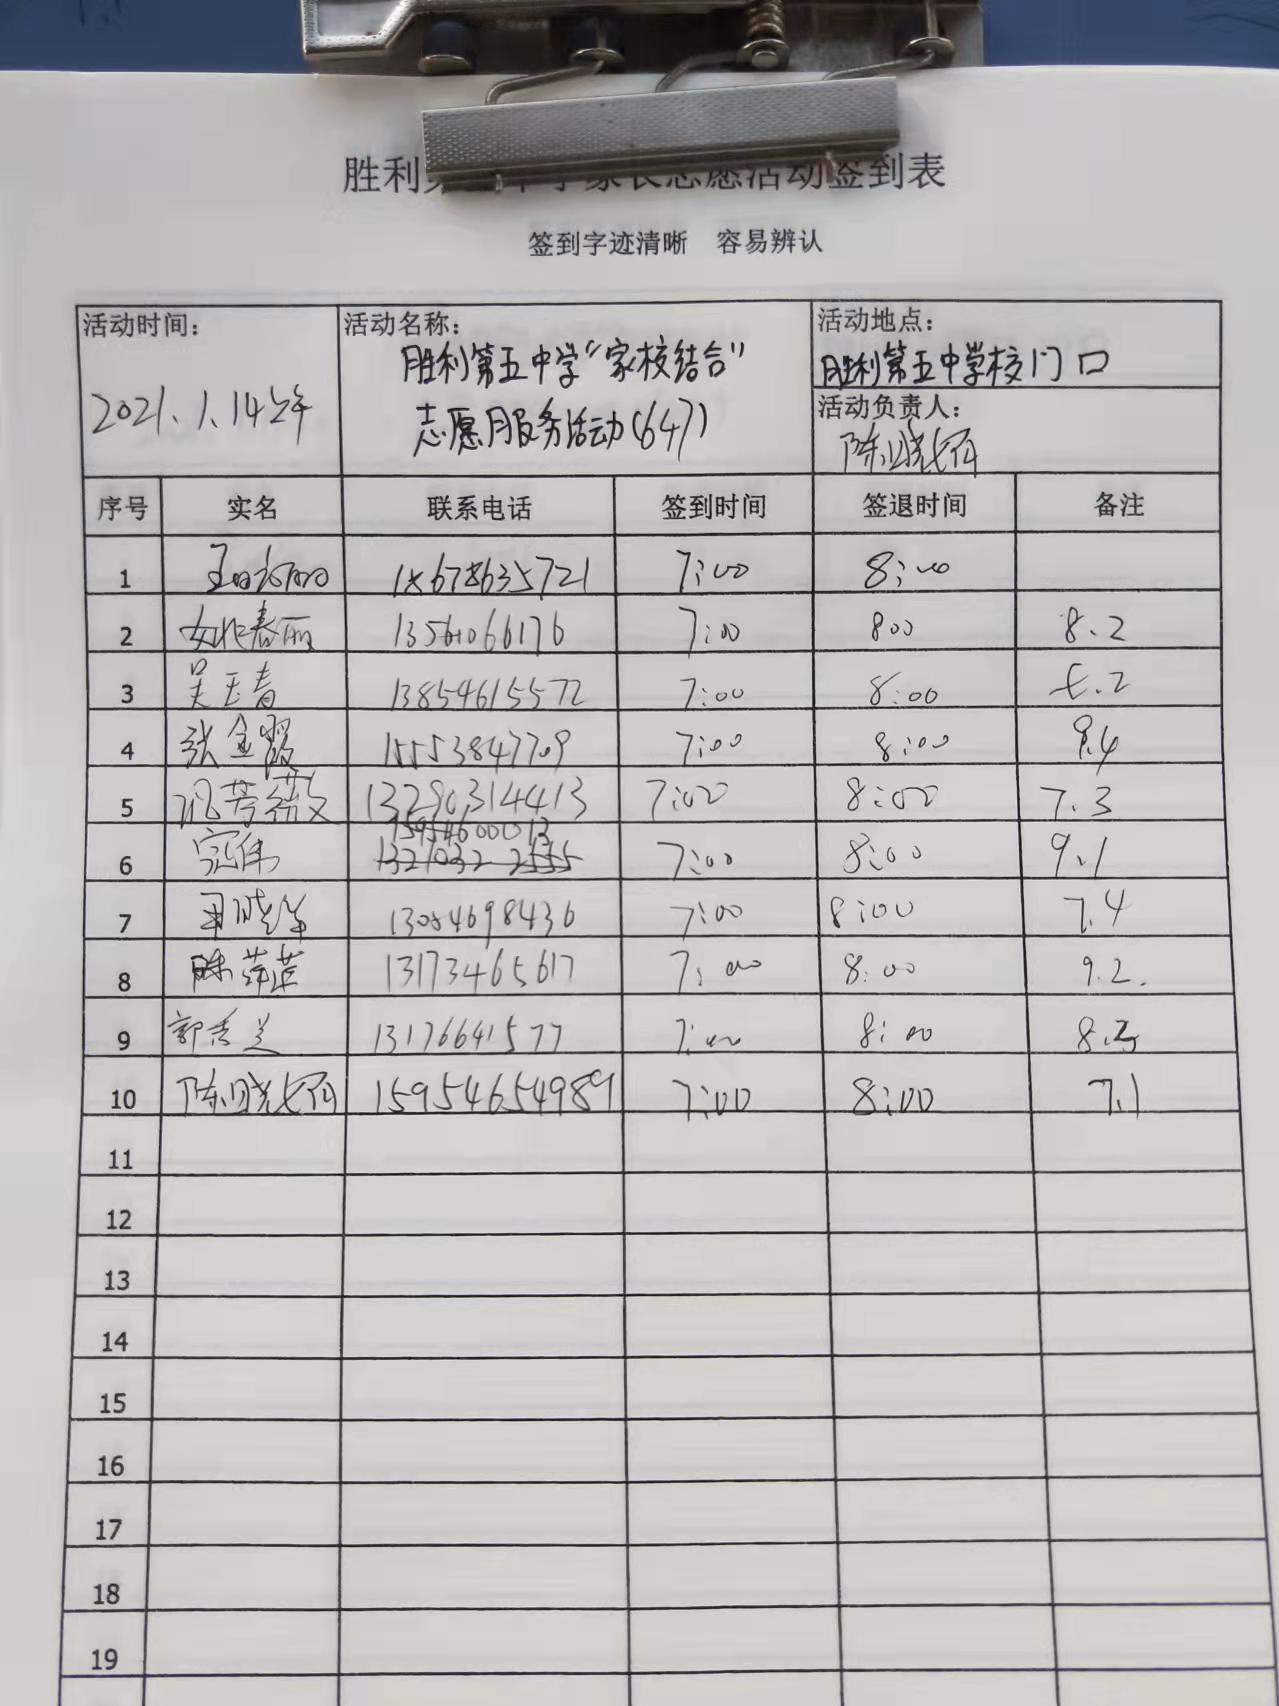 胜利第五中学家长志愿活动签到表
签到字迹清晰 容易辨认
活动时间： 活动名称： 活动地点：
2021.1.14 胜利第五中学“家校结合” 胜利第五中学校门口
志愿服务活动(647) 活动负责人：
陈晓
序号 实名 联系电话 签到时间 签退时间 备注
1 18678635721 7:00 8:00
2 姚春丽 13561066176 7:00 800 8.2
3 吴玉春 13854615572 7:00 8:00 7.2
4 张金霞 15553847709 7:00 8:00 8.4
5 13290314413 7:00 8:00 7.3
15954600013
6 13210322555 7:00 8:00 9.1
7 13054698436 7:00 8:00 7.4
8 陈萍萍 13173465617 7:00 8:00 9.2.
9 郭秀兰 13176641577 7:00 8:00 8.3
10 陈晓 15954654989 7:00 8:00 7.1
11
12
13
14
15
16
17
18
19